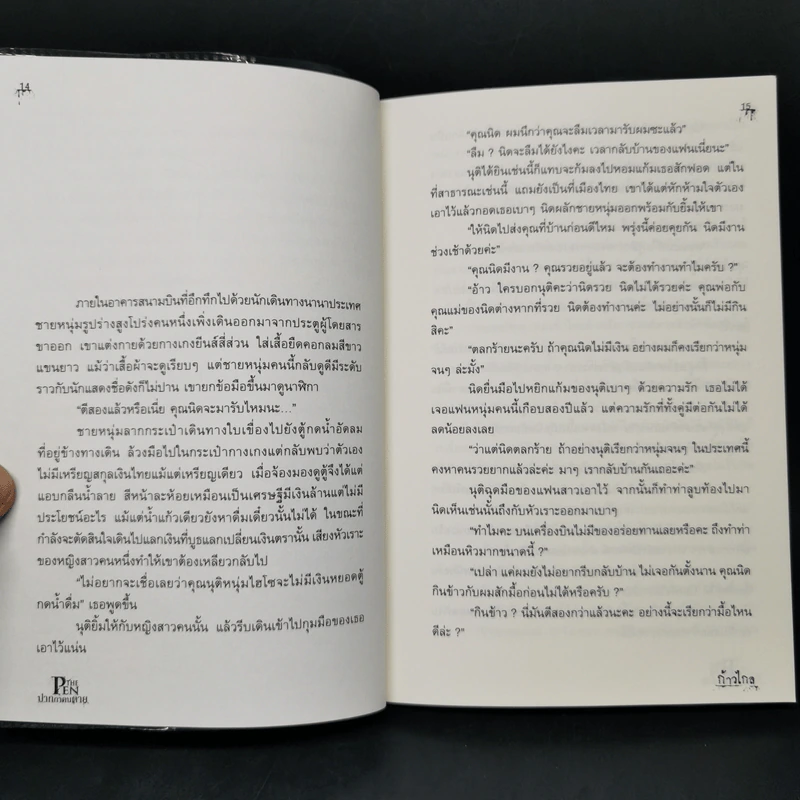 14
ภายในอาคารสนามบินที่อึกทึกไปด้วยนักเดินทางนานาประเทศ
ชายหนุ่มรูปร่างสูงโปร่งคนหนึ่งเพิ่งเดินออกมาจากประตูผู้โดยสาร
ขาออก เขาแต่งกายด้วยกางเกงยีนส์สี่ส่วน ใส่เสื้อยืดคอกลมสีขาว
แขนยาว แม้ว่าเสื้อผ้าจะดูเรียบๆ แต่ชายหนุ่มคนนี้กลับดูดีมีระดับ
ราวกับนักแสดงชื่อดังก็ไม่ปาน เขายกข้อมือขึ้นมาดูนาฬิกา
"ตีสองแล้วหรือเนี่ย คุณนิดจะมารับไหมนะ..."
ชายหนุ่มลากกระเป๋าเดินทางใบเขื่องไปยังตู้กดน้ำอัดลม
ที่อยู่ข้างทางเดิน ล้วงมือไปในกระเป๋ากางเกงแต่กลับพบว่าตัวเอง
ไม่มีเหรียญสกุลเงินไทยแม้แต่เหรียญเดียว เมื่อจ้องมองดูตู้จึงได้แต่
แอบกลืนน้ำลาย สีหน้าละห้อยเหมือนเป็นเศรษฐีมีเงินล้านแต่ไม่มี
ประโยชน์อะไร แม้แต่น้ำแก้วเดียวยังหาดื่มเดี๋ยวนั้นไม่ได้ ในขณะที่
กำลังจะตัดสินใจเดินไปแลกเงินที่บูธแลกเปลี่ยนเงินตรานั้น เสียงหัวเราะ
ของหญิงสาวคนหนึ่งทำให้เขาต้องเหลียวกลับไป
"ไม่อยากจะเชื่อเลยว่าคุณนุติหนุ่มไฮโซจะไม่มีเงินหยอดตู้
กดน้ำดื่ม" เธอพูดขึ้น
นุติยิ้มให้กับหญิงสาวคนนั้น แล้วรีบเดินเข้าไปกุมมือของเธอ
เอาไว้แน่น
THE PEN
ปากกาคนตาย
15
"คุณนิด ผมนึกว่าคุณจะลืมเวลามารับผมซะแล้ว"
"ลืม ? นิดจะลืมได้ยังไงคะ เวลากลับบ้านของแฟนเนี่ยนะ"
นุติได้ยินเช่นนี้ก็แทบจะก้มลงไปหอมแก้มเธอสักฟอด แต่ใน
ที่สาธารณะเช่นนี้ แถมยังเป็นที่เมืองไทย เขาได้แต่หักห้ามใจตัวเอง
เอาไว้แล้วกอดเธอเบาๆ นิดผลักชายหนุ่มออกพร้อมกับยิ้มให้เขา
"ให้นิดไปส่งคุณที่บ้านก่อนดีไหม พรุ่งนี้ค่อยคุยกัน นิดมีงาน
ช่วงเช้าด้วยค่ะ"
"คุณนิดมีงาน ? คุณรวยอยู่แล้ว จะต้องทำงานทำไมครับ ?"
"อ้าว ใครบอกนุติคะว่านิดรวย นิดไม่ได้รวยค่ะ คุณพ่อกับ
คุณแม่ของนิดต่างหากที่รวย นิดต้องทำงานค่ะ ไม่อย่างนั้นก็ไม่มีกิน
สิคะ"
"ตลกร้ายนะครับ ถ้าคุณนิดไม่มีเงิน อย่างผมก็คงเรียกว่าหนุ่ม
จนๆ ล่ะมั้ง"
นิดยื่นมือไปหยิกแก้มของนุติเบาๆ ด้วยความรัก เธอไม่ได้
เจอแฟนหนุ่มคนนี้เกือบสองปีแล้ว แต่ความรักที่ทั้งคู่มีต่อกันไม่ได้
ลดน้อยลงเลย
"ว่าแต่นิดตลกร้าย ถ้าอย่างนุติเรียกว่าหนุ่มจนๆ ในประเทศนี้
คงหาคนรวยยากแล้วล่ะค่ะ มาๆ เรากลับบ้านกันเถอะค่ะ"
นุติฉุดมือของแฟนสาวเอาไว้ จากนั้นก็ทำท่าลูบท้องไปมา
นิดเห็นเช่นนั้นถึงกับหัวเราะออกมาเบาๆ
"ทำไมคะ บนเครื่องบินไม่มีของอร่อยทานเลยหรือคะ ถึงทำท่า
เหมือนหิวมากขนาดนี้ ?"
"เปล่า แค่ผมยังไม่อยากรีบกลับบ้าน ไม่เจอกันตั้งนาน คุณนิด
กินข้าวกับผมสักมื้อก่อนไม่ได้หรือครับ ?"
"กินข้าว ? นี่มันตีสองกว่าแล้วนะคะ อย่างนี้จะเรียกว่ามื้อไหน
ดีล่ะ ?"
ก้าวไกล